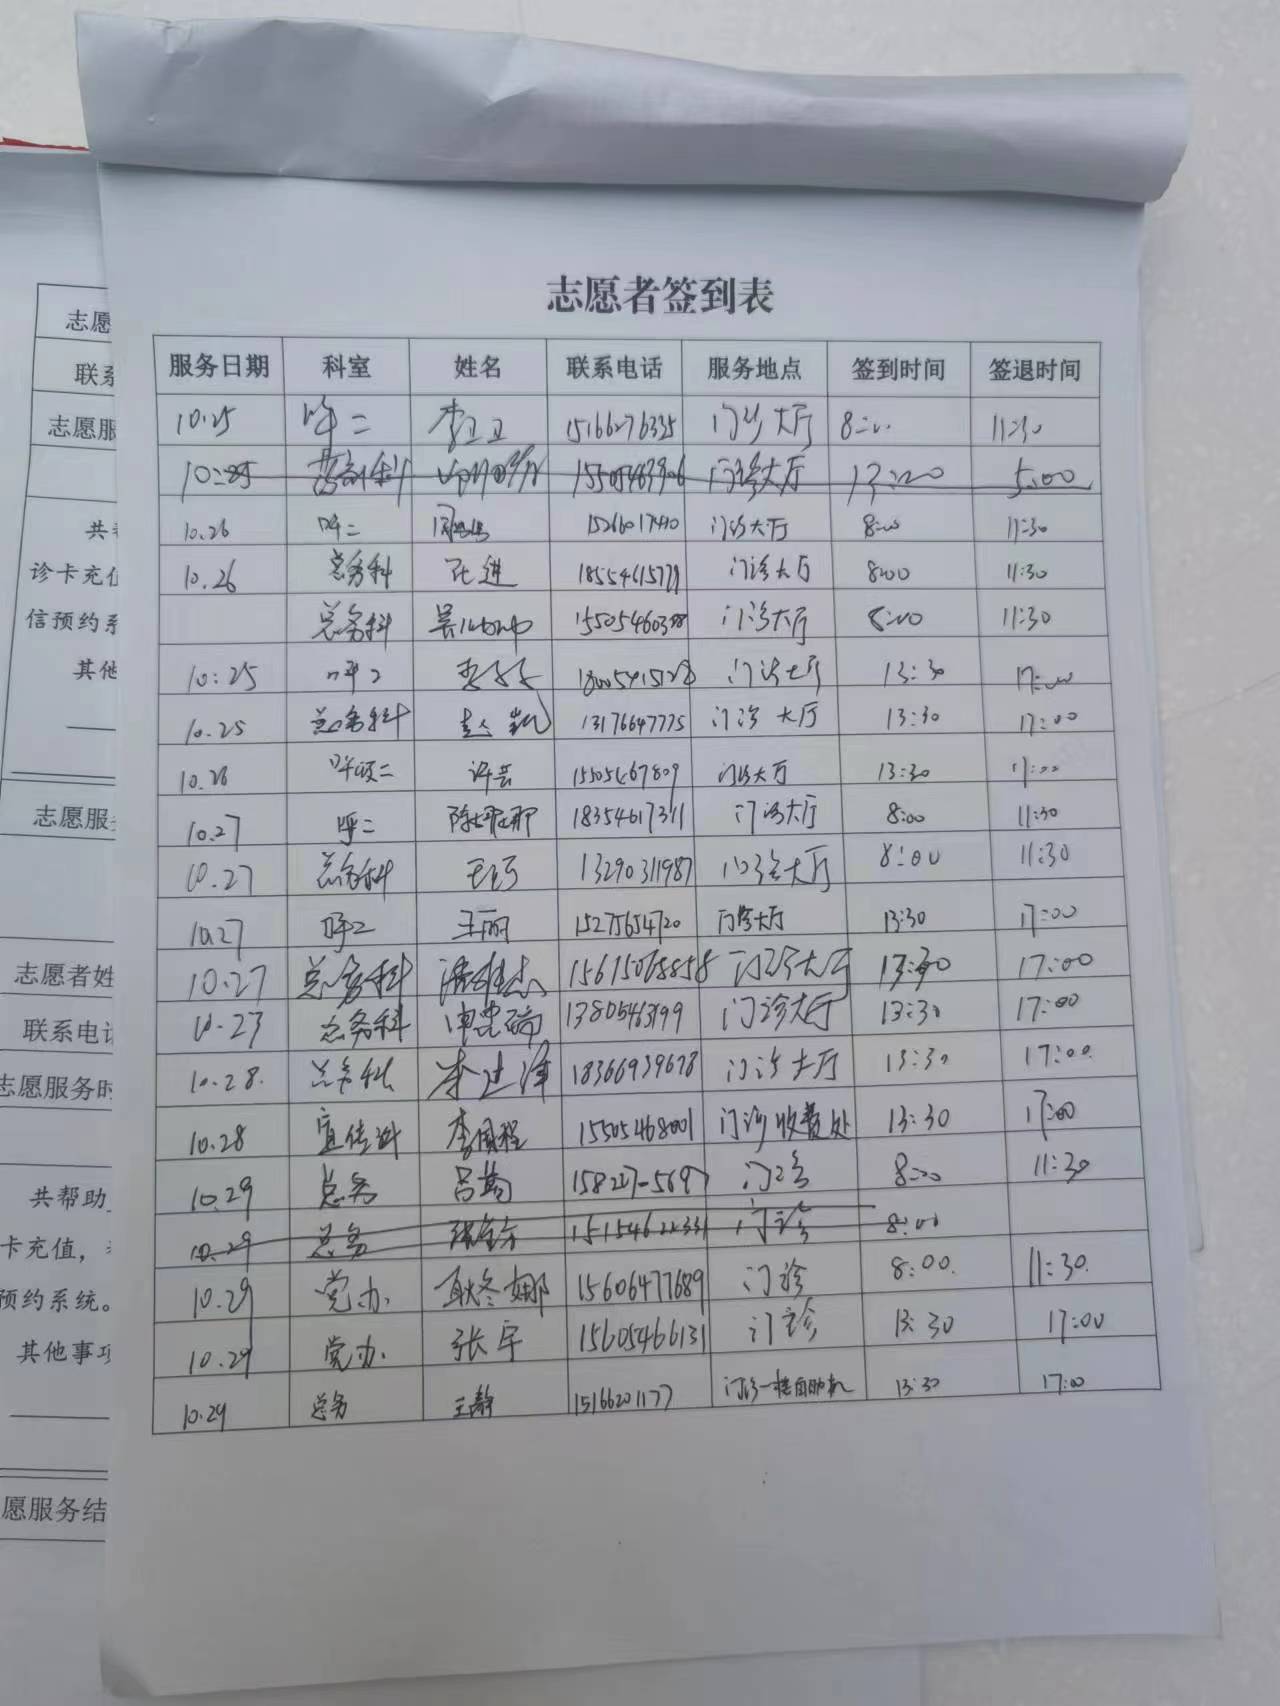 志愿者签到表
服务日期 科室 姓名 联系电话 服务地点 签到时间 签退时间
10.25 呼二 李卫卫 15166276335 门诊大厅 8:00 11:30
10:25 门诊大厅 13:00 5:00
10.26 呼二 门诊大厅 8:00 11:30
10.26 总务科 张进 门诊大厅 8:00 11:30
总务科 门诊大厅 8:00 11:30
10:25 呼二 门诊大厅 13:30 17:00
10.25 总务科 赵凯 13176647775 门诊大厅 13:30 17:00
10.26 呼吸二 许芸 15505467809 门诊大厅 13:30 17:00
10.27 呼二 陈娜娜 18354617311 门诊大厅 8:00 11:30
10.27 总务科 13290311987 门诊大厅 8:00 11:30
10.27 呼二 王丽 15275654720 门诊大厅 13:30 17:00
10.27 总务科 15615068858 门诊大厅 13:30 17:00
10.27 总务科 门诊大厅 13:30 17:00
10.28. 总务科 李建泽 18366939678 门诊大厅 13:30 17:00
10.28 宣传科 李国程 15505468001 门诊收费处 13:30 17:00
10.29 总务 门诊 8:00 11:30
10.29 总务 15154622331 门诊 8:00
10.29 党办 耿冬娜 15606477689 门诊 8:00. 11:30.
10.29 党办 张宇 15605466131 门诊 13:30 17:00
10.29 总务 王静 15166201177 门诊一楼自助机 13:30 17:00
志愿
联系
志愿服
共
诊卡充值
信预约系
其他
志愿服
志愿者姓
联系电话
志愿服务时
共帮助
卡充值，
预约系统。
其他事项
愿服务结